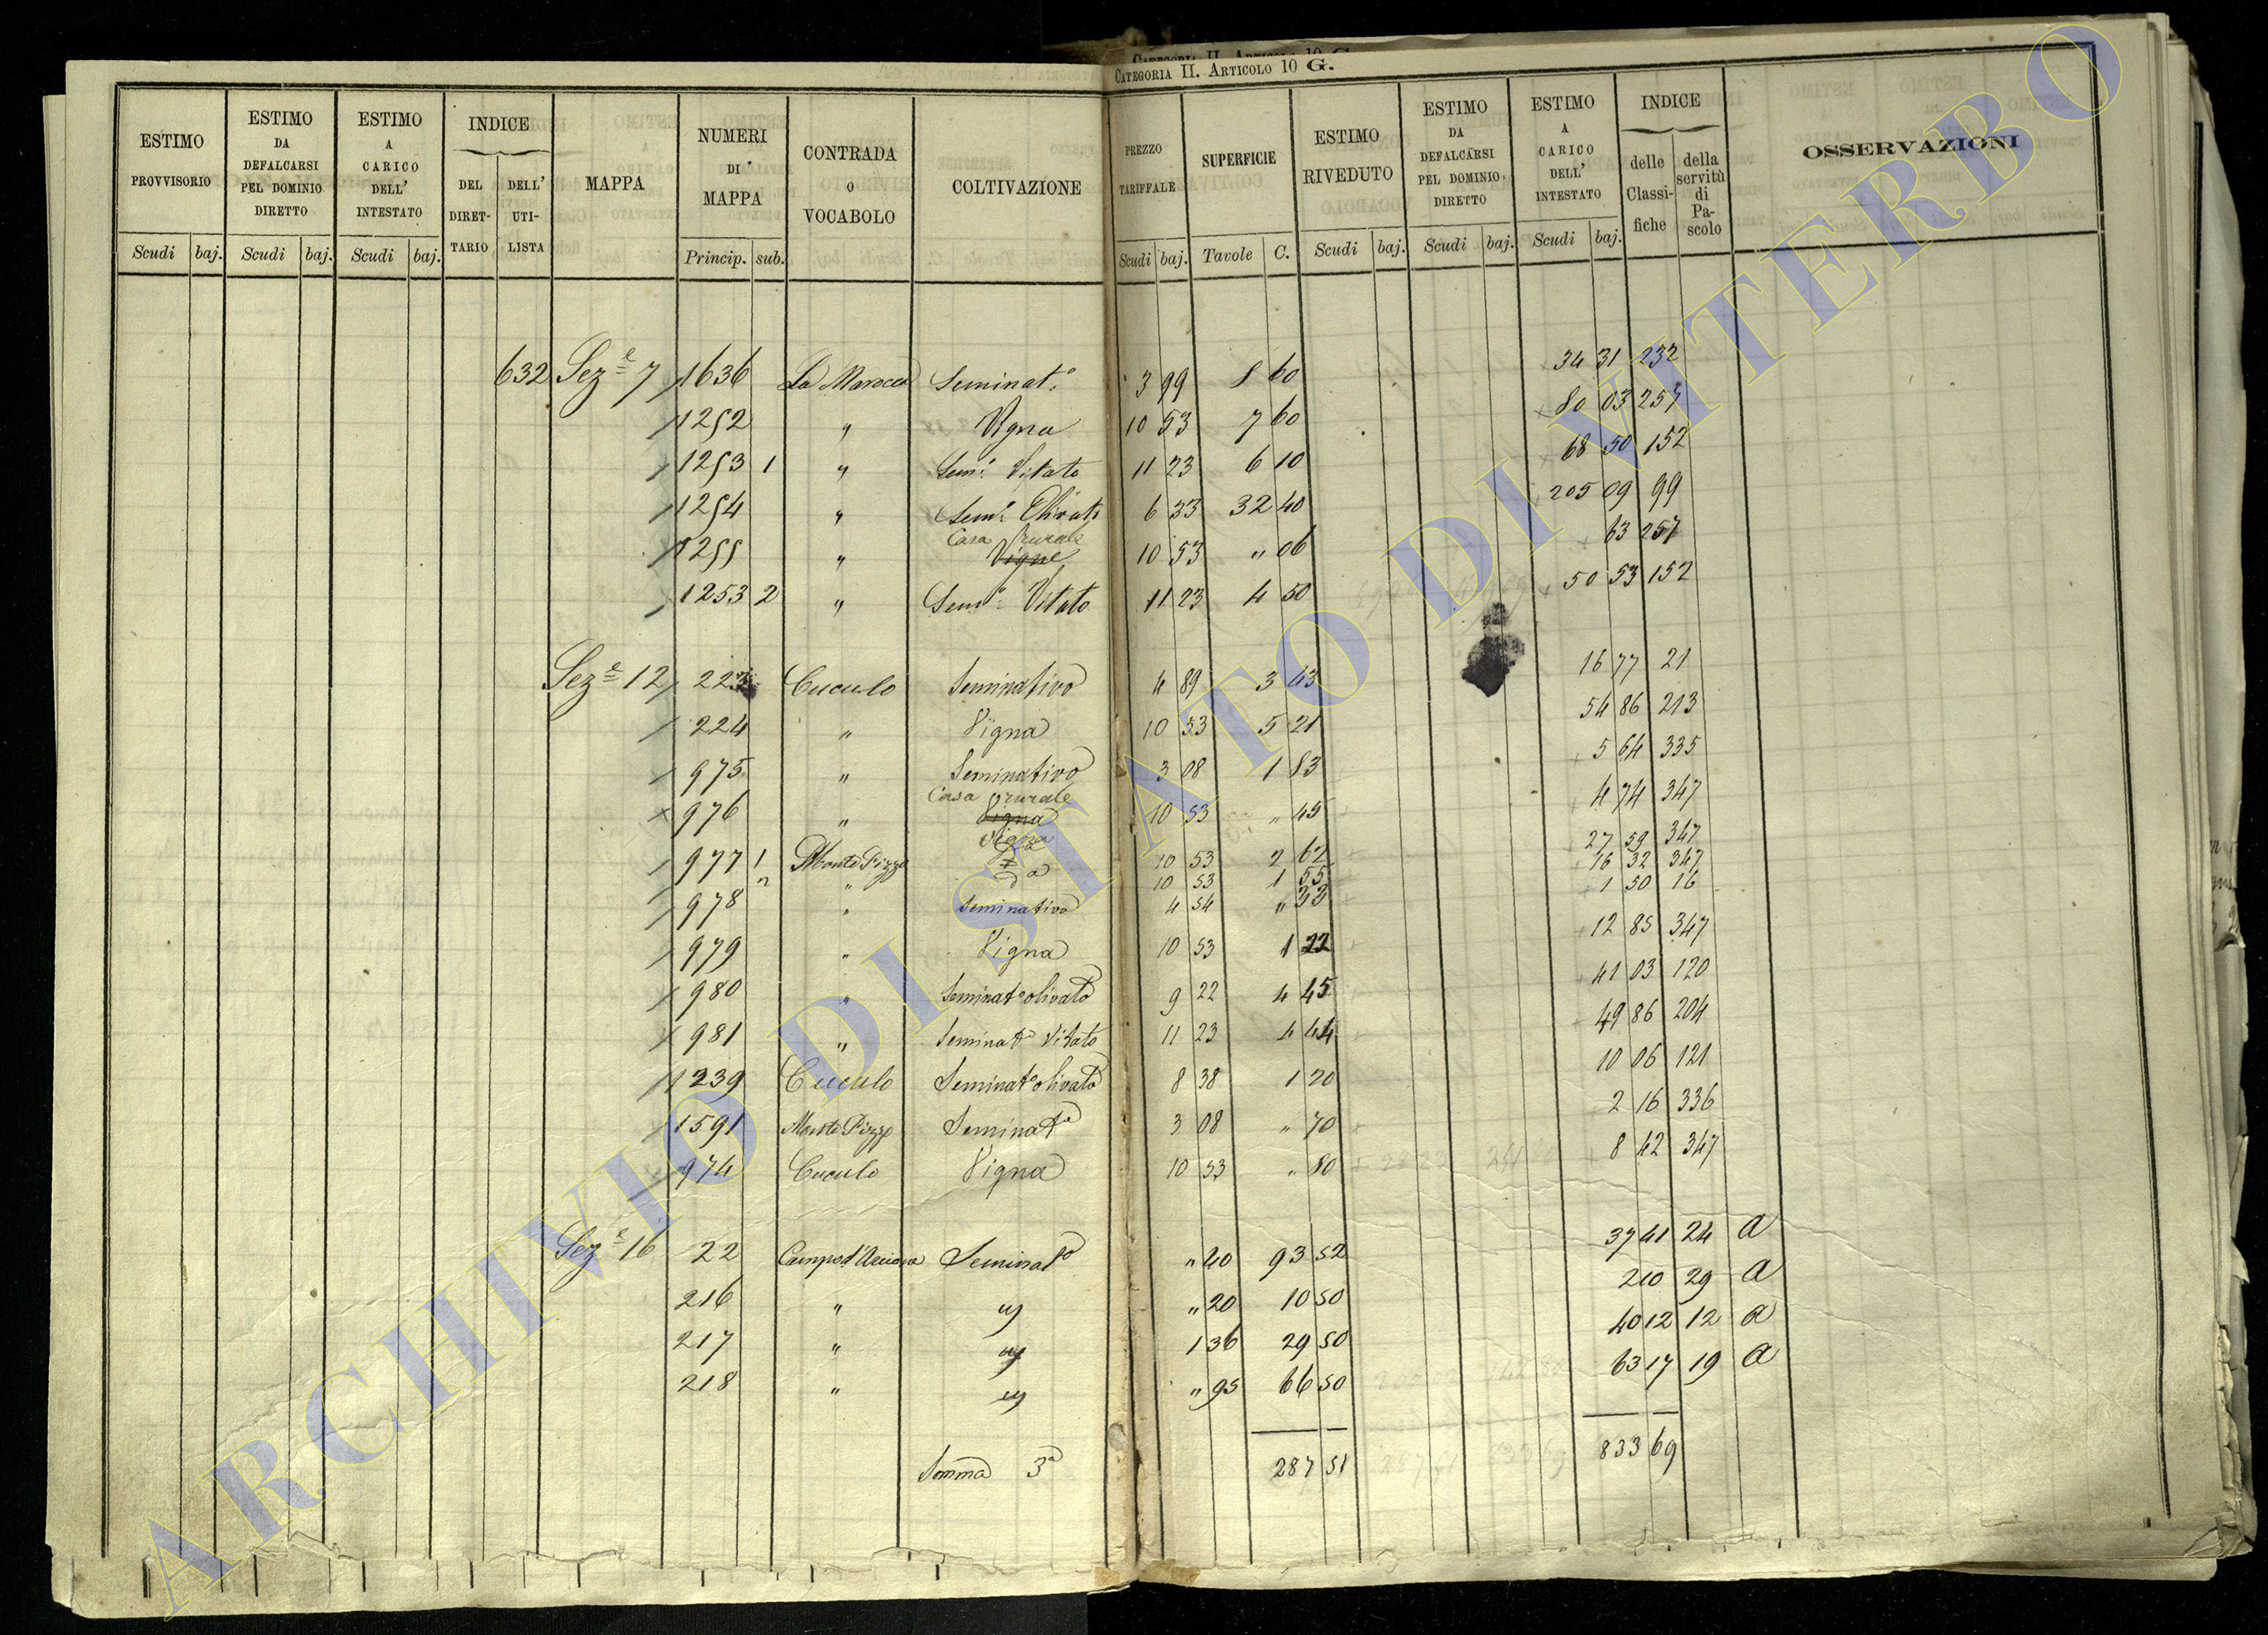 CATEGORIA II. ARTICOLO 10 G.
CATEGORIA II. ARTICOLO 10 G.
ESTIMO PROVVISORIO | ESTIMO DA DEFALCARSI PEL DOMINIO DIRETTO | ESTIMO A CARICO DELL' INTESTATO | INDICE DEL DIRET-TARIO | DELL' UTI-LISTA | MAPPA | NUMERI DI MAPPA | CONTRADA O VOCABOLO | COLTIVAZIONE | PREZZO TARIFFALE | SUPERFICIE | ESTIMO RIVEDUTO | ESTIMO DA DEFALCARSI PEL DOMINIO DIRETTO | ESTIMO A CARICO DELL' INTESTATO | INDICE delle Classi-fiche | della servitù di Pa-scolo | OSSERVAZIONI
Scudi baj. Scudi baj. Scudi baj. Princip. sub. Scudi baj. Tavole C. Scudi baj. Scudi baj. Scudi baj.
632 Sez.e 7 1636 La Marocca Seminat.o 3 99 8 60 34 31 232
1252 " Vigna 10 53 7 60 80 03 257
1253 1 " Sem.o Vitato 11 23 6 10 68 50 152
1254 " Sem.o Olivato 6 33 32 40 205 09 99
Casa rurale
1255 " Vigne 10 53 " 06 63 257
1253 2 " Sem.o Vitato 11 23 4 50 50 53 152
Sez.e 12 223 Cuculo Seminativo 4 89 3 43 16 77 21
224 " Vigna 10 53 5 21 54 86 213
975 " Seminativo 3 08 1 83 5 64 335
Casa rurale
976 " Vigna 10 53 " 45 4 74 347
977 1 Monte Pizzo Vigna 10 53 2 62 27 59 347
2 " da 10 53 1 55 16 32 347
978 " Seminativo 4 54 " 33 1 50 16
979 " Vigna 10 53 1 22 12 85 347
980 " Seminato olivato 9 22 4 45 41 03 120
981 " Seminat.o Vitato 11 23 4 44 49 86 204
1239 Cuculo Seminato olivato 8 38 1 20 10 06 121
1591 Monte Pizzo Seminat.o 3 08 " 70 2 16 336
974 Cuculo Vigna 10 53 " 80 8 42 347
Sez.e 16 22 Campo d' Seminat.o " 40 93 52 37 41 24 a
216 " " 20 10 50 2 10 29 a
217 " 1 36 29 50 40 12 12 a
218 " " 95 66 50 63 17 19 a
Somma 3a 287 51 833 69
ARCHIVIO DI STATO DI VITERBO